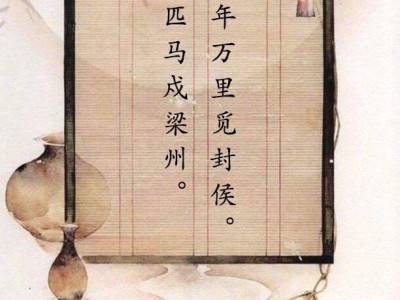 年万里觅封侯。
匹马戍梁州。